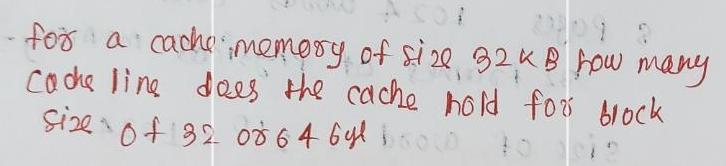 for a cache memory of size 32 KB how many
cache line does the cache hold for block
size of 32 or 64 byt